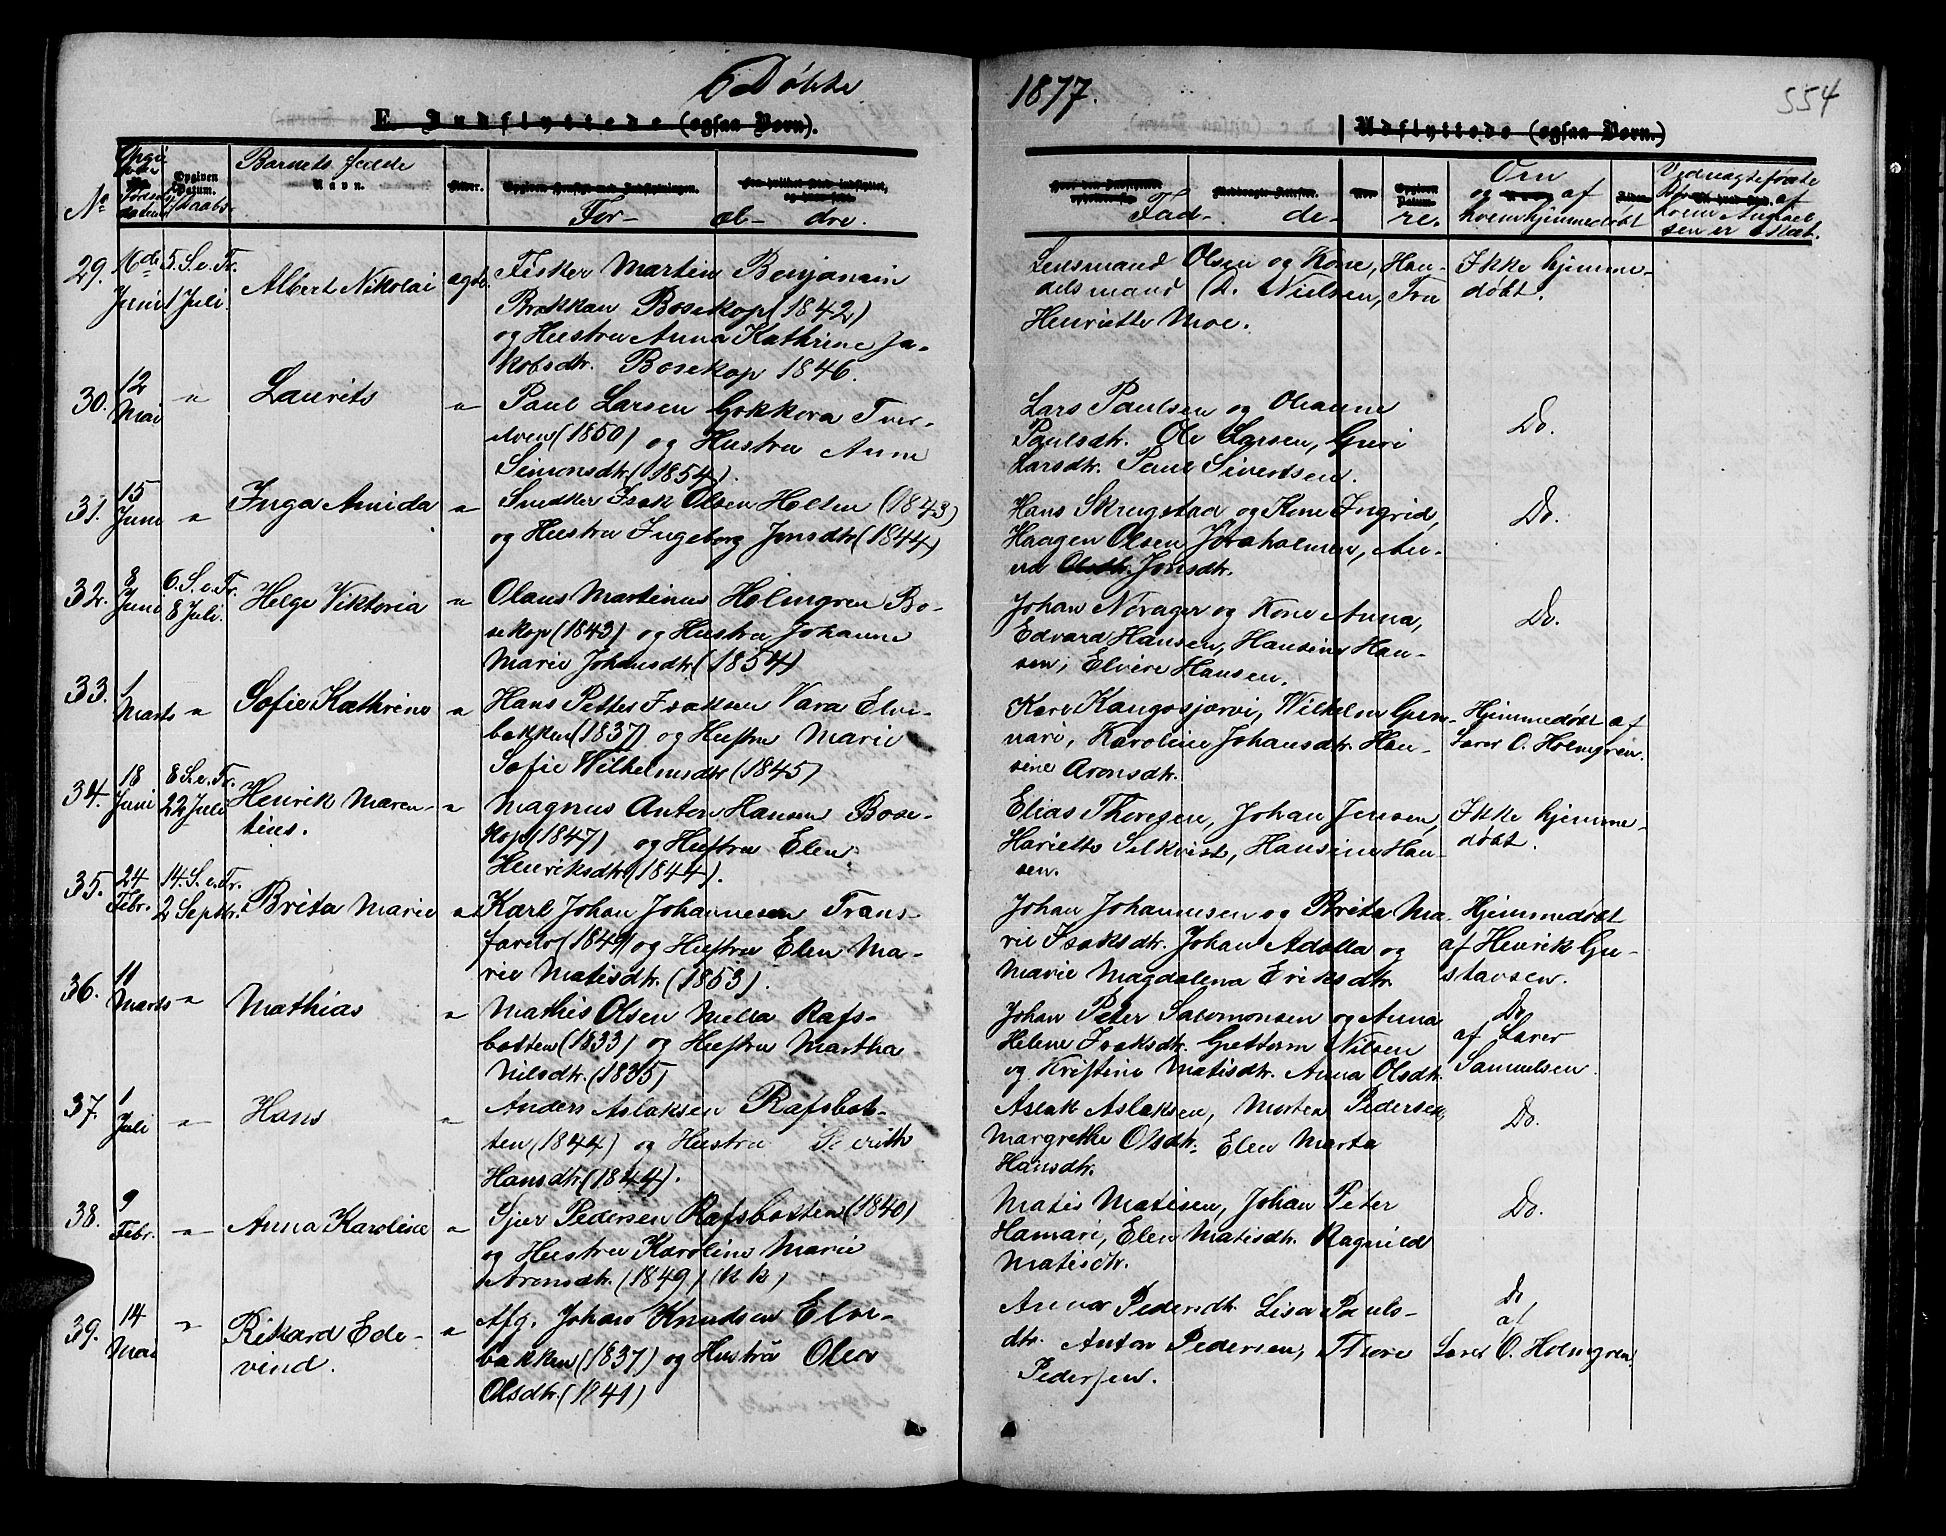 Døbte
1877.
554
E. Indflyttede (ogsaa Børn).
Udflyttede (ogsaa Børn.)
No
Opgivet Datum.
Daabs
Barnets fulde
Navn.
For- æl- dre.
Fad- de- re.
Om
og af
hvem hjemmedøbt
29.
Juni
5. S. e. Tr.
1 Juli.
Albert Nikolai
ægte.
Fisker Martin Benjamin
Brakkan Bosekop (1842)
og Hustru Anna Kathrine Ja-
kobsdtr. Bosekop 1846.
Lensmand Olsen og Kone, Han-
delsmand O. Nielsen, Fru
Henriette Moe.
Ikke hjemme-
døbt.
30.
12
Mai
"
Laurits
"
Paul Larsen Gokkora Tver-
elven (1850) og Hustru Anne
Simonsdtr. (1854).
Lars Paulsen og Oleanne
Paulsdtr. Ole Larsen, Guri
Larsdtr. Paul Sivertsen.
Do.
31.
15
Juni
"
Inga Amida
"
Snedker Isak Olsen Holten (1843)
og Hustru Ingeborg Jonsdtr. (1844)
Hans Skrugstad og Kone Ingrid,
Haagen Olsen Joraholmen, An-
na Olsdtr. Jonsdtr.
Do.
32.
8
Juni
6. S. e. Tr.
8 Juli.
Helge Viktoria
"
Olaus Martinus Holmgren Bo-
sekop (1843) og Hustru Johanne
Marie Johansdtr. (1854)
Johan Norager og Kone Anna,
Edvard Hansen, Hansine Han-
sen, Elvire Hansen.
Do.
33.
1
Marts
"
Sofie Kathrine
"
Hans Petter Isaksen Vara Elve-
bakken (1837) og Hustru Marie
Sofie Wilhelmsdtr. (1845)
Kare Kangosjærvi, Wilhelm Gun-
nari, Karoline Johansdtr. Han-
sine Aronsdtr.
Hjemmedøbt af
Lærer O. Holmgren.
34.
18
Juni
8 S. e. Tr.
22 Juli
Henrik Maren-
tius.
"
Magnus Anton Hansen Bose-
kop (1847) og Hustru Elen
Henriksdtr. (1844).
Elias Thoresen, Johan Jensen,
Hariette Selkvist, Hansine Han-
sen.
Ikke hjemme-
døbt.
35.
24
Febr.
14. S. e. Tr.
2 Septbr.
Brita Marie
"
Karl Johan Johannesen Trans-
farelv (1849) og Hustru Elen Ma-
rie Matisdtr. (1853).
Johan Johannesen og Brita Ma-
rie Isaksdtr. Johan Adolla og
Marie Magdalena Eriksdtr.
Hjemmedøbt
af Henrik Gu-
stavsen.
36.
11
Marts
"
Mathias
"
Mathis Olsen Mella Rafs-
botten (1833) og Hustru Martha
Nilsdtr. (1835)
Johan Peter Salomonsen og Anna
Helene Isaksdtr. Guttorm Nilsen
og Kristine Matisdtr. Anna Olsdtr.
Do
af Lærer
Samuelsen.
37.
1
Juli
"
Hans
"
Anders Aslaksen Rafsbot-
ten (1844) og Hustru
Hansdtr. (1844).
Aslak Aslaksen, Morten Pedersen,
Margrethe Olsdtr. Elen Marta
Hansdtr.
Do.
38.
9
Febr.
"
Anna Karoline
"
Sjur Pedersen Rafsbotten (1840)
og Hustru Karoline Marie
Aronsdtr. (1849)
Matis Matisen, Johan Peter
Hamari, Elen Matisdtr. Ragnild
Matisdtr.
Do.
39.
14
Mai
"
Rikard Ede-
vind.
"
Afg. Johan Knudsen Elve-
bakken (1837) og Hustru Olea
Olsdtr. (1841)
Anna Pedersdtr. Lisa Pauls-
dtr. Anton Pedersen, Thore
Pedersen.
Do
af
Lærer O. Holmgren